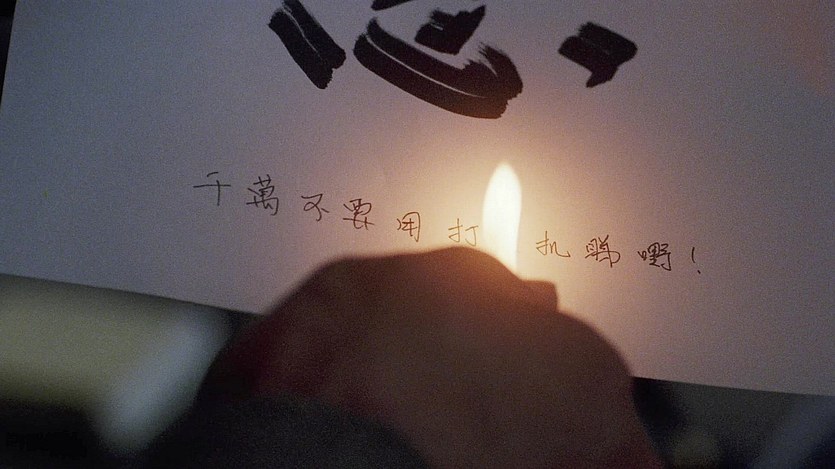 千萬不要用打 机睇嘢!